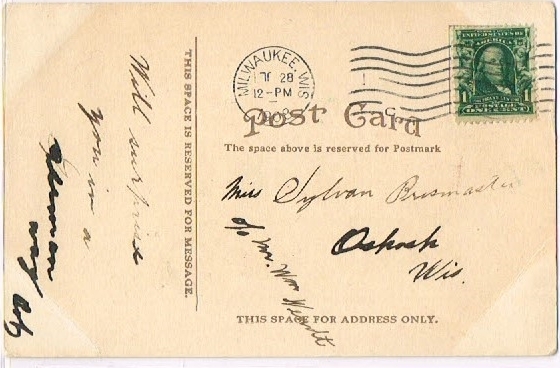 UNITED STATES OF AMERICA
POSTAGE
ONE CENT
MILWAUKEE, WIS
28
12-PM
Post Card
The space above is reserved for Postmark
THIS SPACE IS RESERVED FOR MESSAGE.
Will surprise
you in a
way
Miss Sylvan
Oshosh
Wis.
c/o Mr. Wm Wendt
THIS SPACE FOR ADDRESS ONLY.